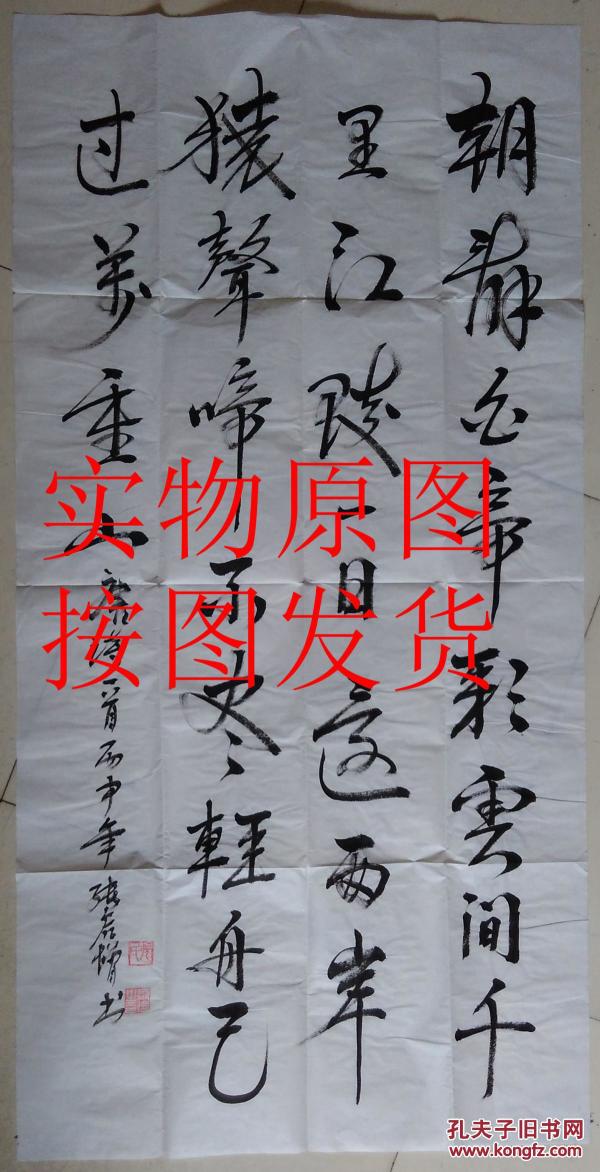 朝辭白帝彩雲间千
里江陵一日还两岸
猿聲啼不尽輕舟已
过萬重山
唐诗一首丙申年張書
实物原图
按图发货
孔夫子旧书网
www.kongfz.com